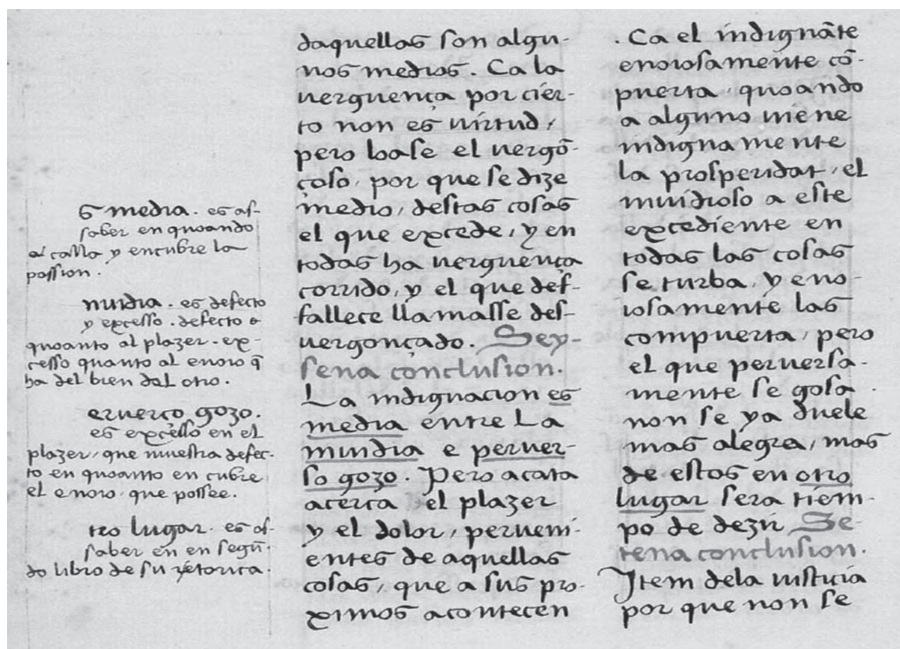 G media. es as-
saber en quoando
ai calla y encubre la
passion.
nuidia. es defecto
y excesso. defecto e
quoanto al plazer. ex-
cesso quanto al enoio q̃
ha del bien dal otro.
eruerço gozo.
es excesso en el
plazer, que muestra defec-
to en quoanto en cubre
el enoio, que possee.
tro lugar. es as-
saber en en segũ-
do libro de su retorica.
daquellas son algu-
nos medios. Ca la
uerguença por cier-
to non es uirtud,
pero loase el uergõ-
çoso, por que se dize
medio, destas cosas
el que excede, y en
todas ha uerguença
corrido, y el que def-
fallece llamasse des-
uergonçado. Sey-
sena conclusion.
La indignacion es
media entre La
inuidia e peruer-
so gozo. Pero acata
acerca el plazer
y el dolor, peruení-
entes de aquellas
cosas, que a sus pro-
ximos acontecen
. Ca el indignãte
enoiosamente cõ-
puerta, quoando
a alguno uiene
indignamente
la prosperidat, el
inuidioso a este
excediente en
todas las cosas
se turba, y eno-
iosamente las
compuerta, pero
el que peruersa-
mente se gosa
non se ya duele
mas alegra, mas
de estos en otro
lugar sera tiem-
po de dezir. Se-
tena conclusion.
Item dela iusticia
por que non se